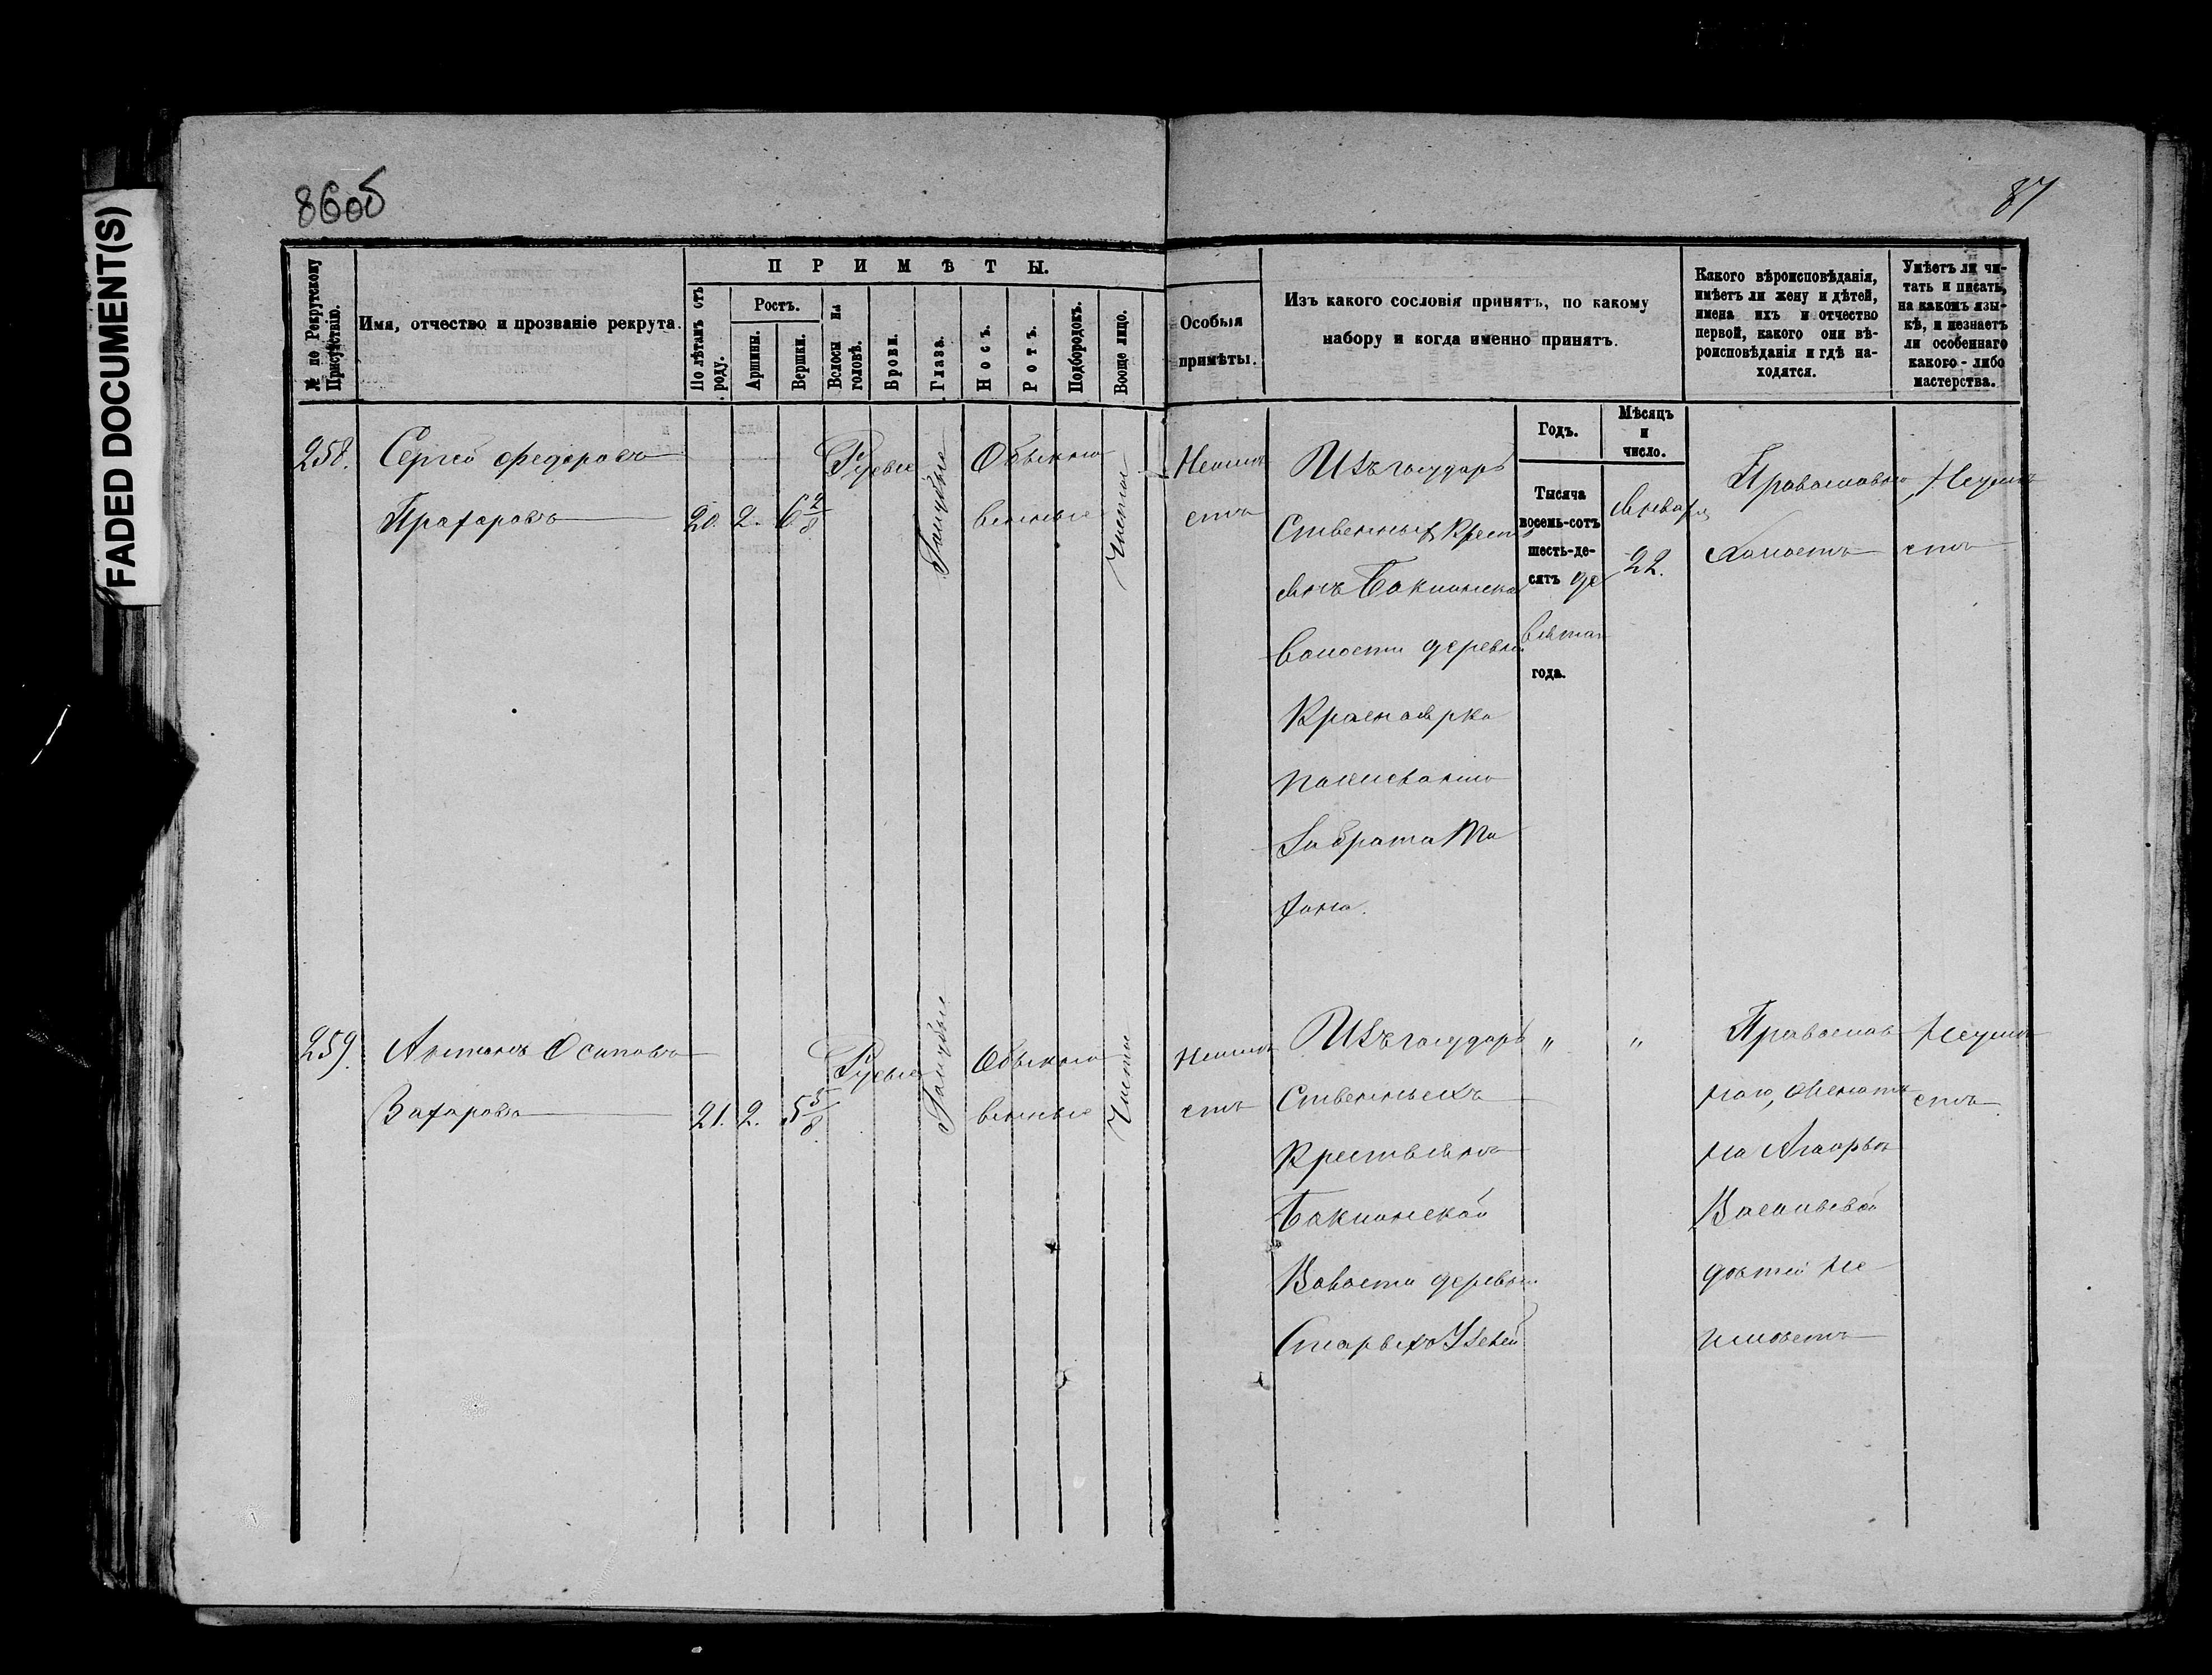 FADED DOCUMENT(S)
86об
87
№ по Рекрутскому Присутствію.
Имя, отчество и прозваніе рекрута.
ПРИМѢТЫ.
По лѣтамъ отъ роду.
Ростъ.
Аршины.
Вершки.
Волосы на головѣ.
Брови.
Глаза.
Носъ.
Ротъ.
Подбородокъ.
Вооще лицо.
Особыя
примѣты.
Изъ какого сословія принятъ, по какому
набору и когда именно принятъ.
Какого вѣроисповѣданія,
имѣетъ ли жену и дѣтей,
имена ихъ и отчество
первой, какого они вѣ-
роисповѣданія и гдѣ на-
ходятся.
Умѣетъ ли чи-
тать и писать,
на какомъ язы-
кѣ, и незнаетъ
ли особеннаго
какого-либо
мастерства.
Годъ.
Мѣсяцъ
и
число.
258.
Сергей Федоровъ
20. 2. 6 2/8
Русые
Голубые
Обыкно
венные
Чистое
Неиме
етъ
Изъ государ
ственныхъ Крестъ
янъ
волости деревни
Красноярка
За брата
Тысяча
восемь-сотъ
шесть-де-
сятъ де
вятаго
года.
Января
22.
Православно
Холостъ
Неуме
етъ
259.
Антонъ Осиповъ
Захаровъ
21. 2. 5 5/8
Русые
Голубые
Обыкно
венные
Чистое
Неиме
етъ
Изъ государ
ственныхъ
Крестьянъ
Волости деревни
Старыхъ
"
"
Православ
наго, Женатъ
на
Васильевой
детей не
имеетъ
Неуме
етъ